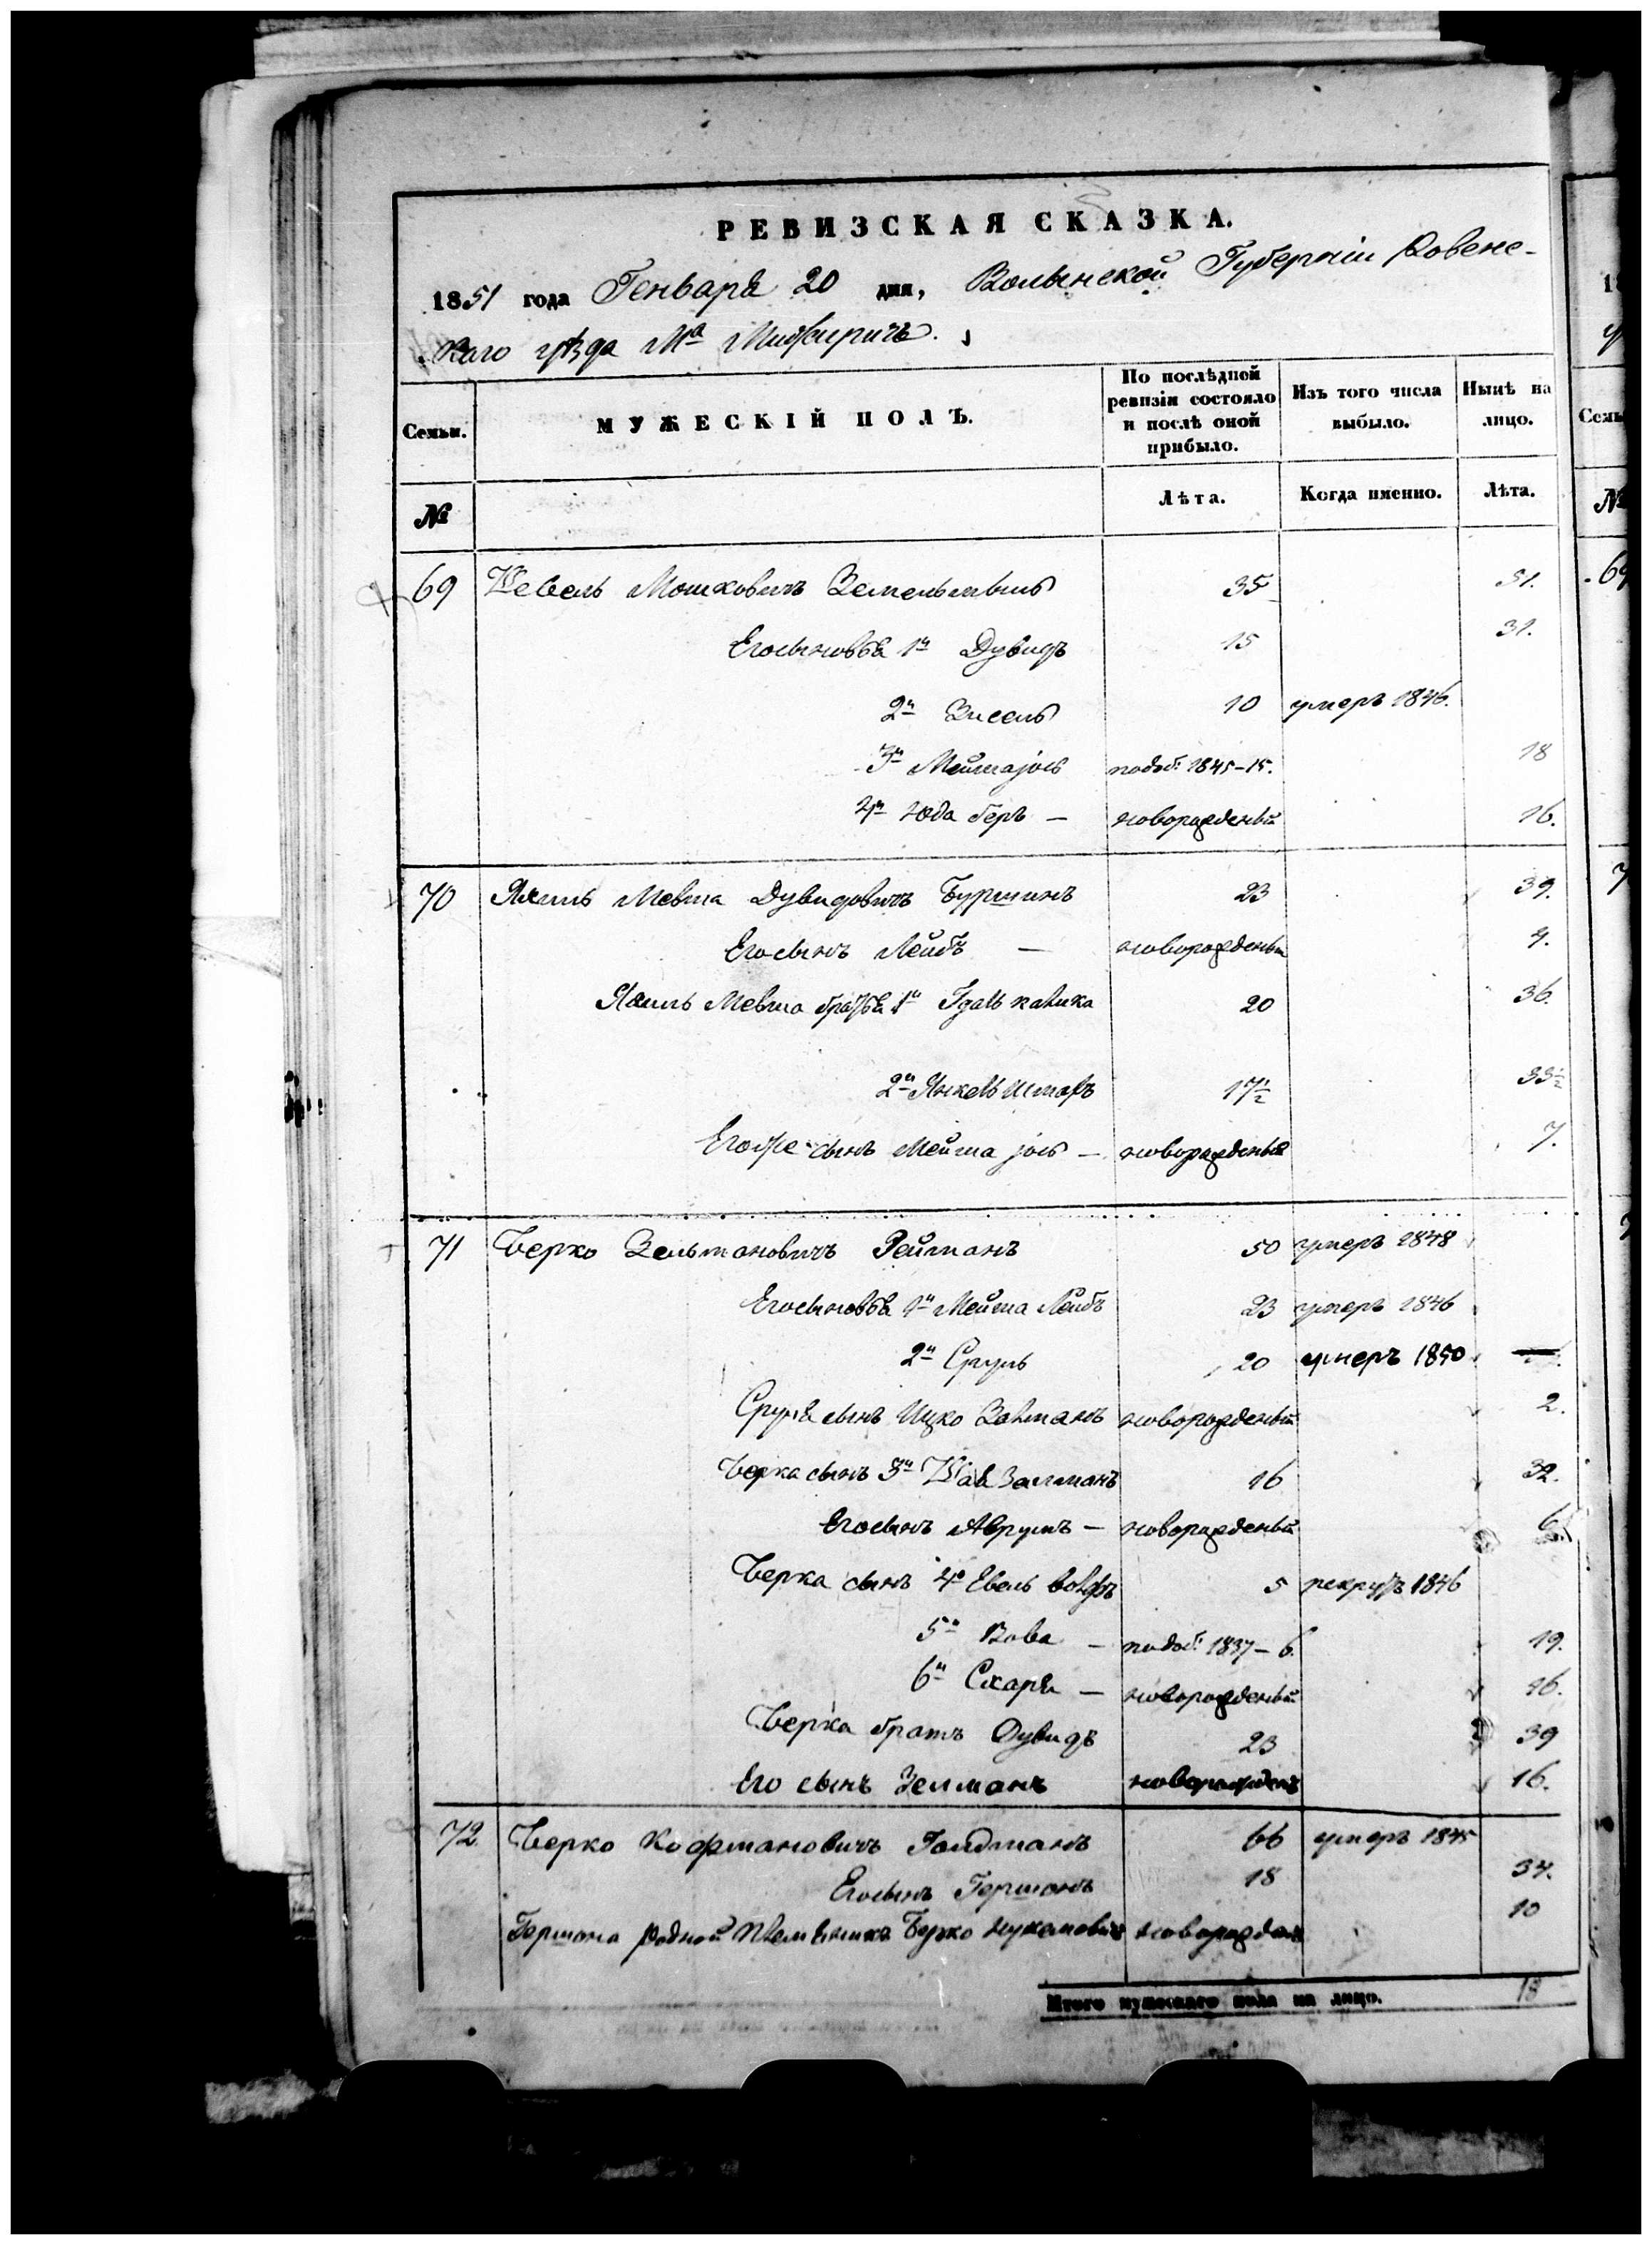 РЕВИЗСКАЯ СКАЗКА.
1851 года Генваря 20 дня, Волынской Губернiи Ровенс-
каго уѣзда Мa Межиричъ.
Семьи. МУЖЕСКIЙ ПОЛЪ. По послѣдней ревизiи состояло и послѣ оной прибыло. Изъ того числа выбыло. Нынѣ на лицо.
№ Лѣта. Когда именно. Лѣта.
69 Шевель Мошковичъ 35 51.
Его сыновья 1й Дувидъ 15 31.
2й Зисель 10 умеръ 1846.
3й 1845-15. 18
4й Юда беръ — новорожденый 16.
70 Мевша Дувидовичъ Бурштинъ 23 39.
Его сынъ Лейбъ — новорожденый 9.
Мевша братья 1й 20 36.
2й Янкель 17½ 33½
Егоже сынъ — новорожденый 7.
71 Берко Зельмановичъ Рейманъ 50 умеръ 1848
Его сыновья 1й Лейбъ 23 умеръ 1846
2й Сруль 20 умеръ 1850
Сруля сынъ Ицко Залманъ новорожденый 2.
Берка сынъ 3й Залманъ 16 32.
Его сынъ Аврумъ — новорожденый 6.
Берка сынъ 4й Евель Вольфъ 5 рекрутъ 1846
5й — 1837-6. 19.
6й Схарія — новорожденый 16.
Берка братъ Дувидъ 23 39
Его сынъ Зелманъ новорожденъ 16.
72 Берко Кофмановичъ Голдманъ 66 умеръ 1845
Его сынъ Гершонъ 18 34.
Гершона родной племянникъ Берко новорожден 10
Итого мужескаго пола на лицо. 18